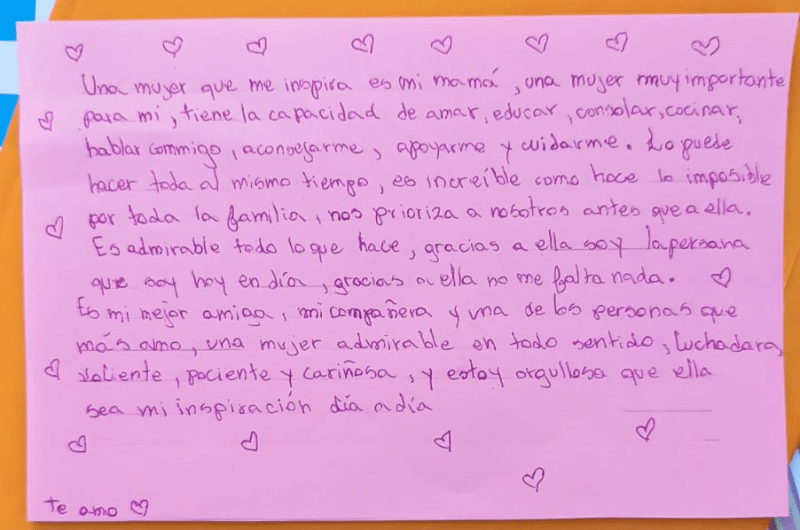 Una mujer que me inspira es mi mamá, una mujer muy importante
para mi, tiene la capacidad de amar, educar, consolar, cocinar,
hablar commigo, aconsejarme, apoyarme y cuidarme. Lo puede
hacer toda al mismo tiempo, es increíble como hace lo imposible
por toda la familia, nos prioriza a nosotros antes que a ella.
Es admirable todo lo que hace, gracias a ella soy la persona
que soy hoy en día, gracias a ella no me falta nada.
Es mi mejor amiga, mi compañera y una de las personas que
más amo, una mujer admirable en todo sentido, luchadara,
valiente, paciente y cariñosa, y estoy orgullosa que ella
sea mi inspiración día a día
te amo